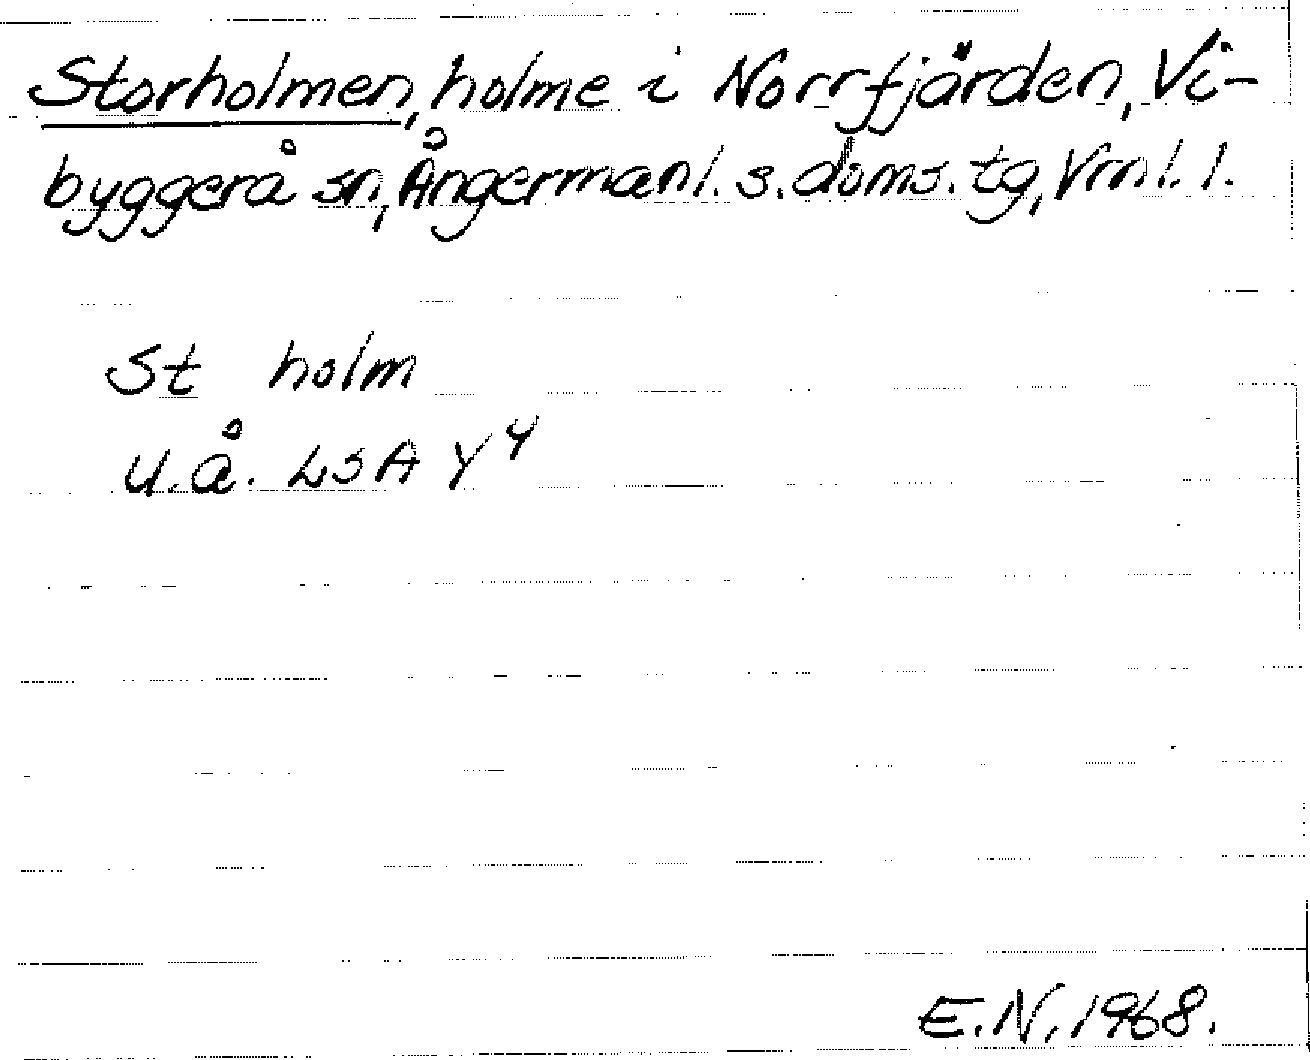 Storholmen, holme i Norrfjärden, Vi-
byggerå sn, Ångermanl. s. doms. tg, Vrnl. l.
St holm
u.å. LSA Y 4
E.N. 1968.